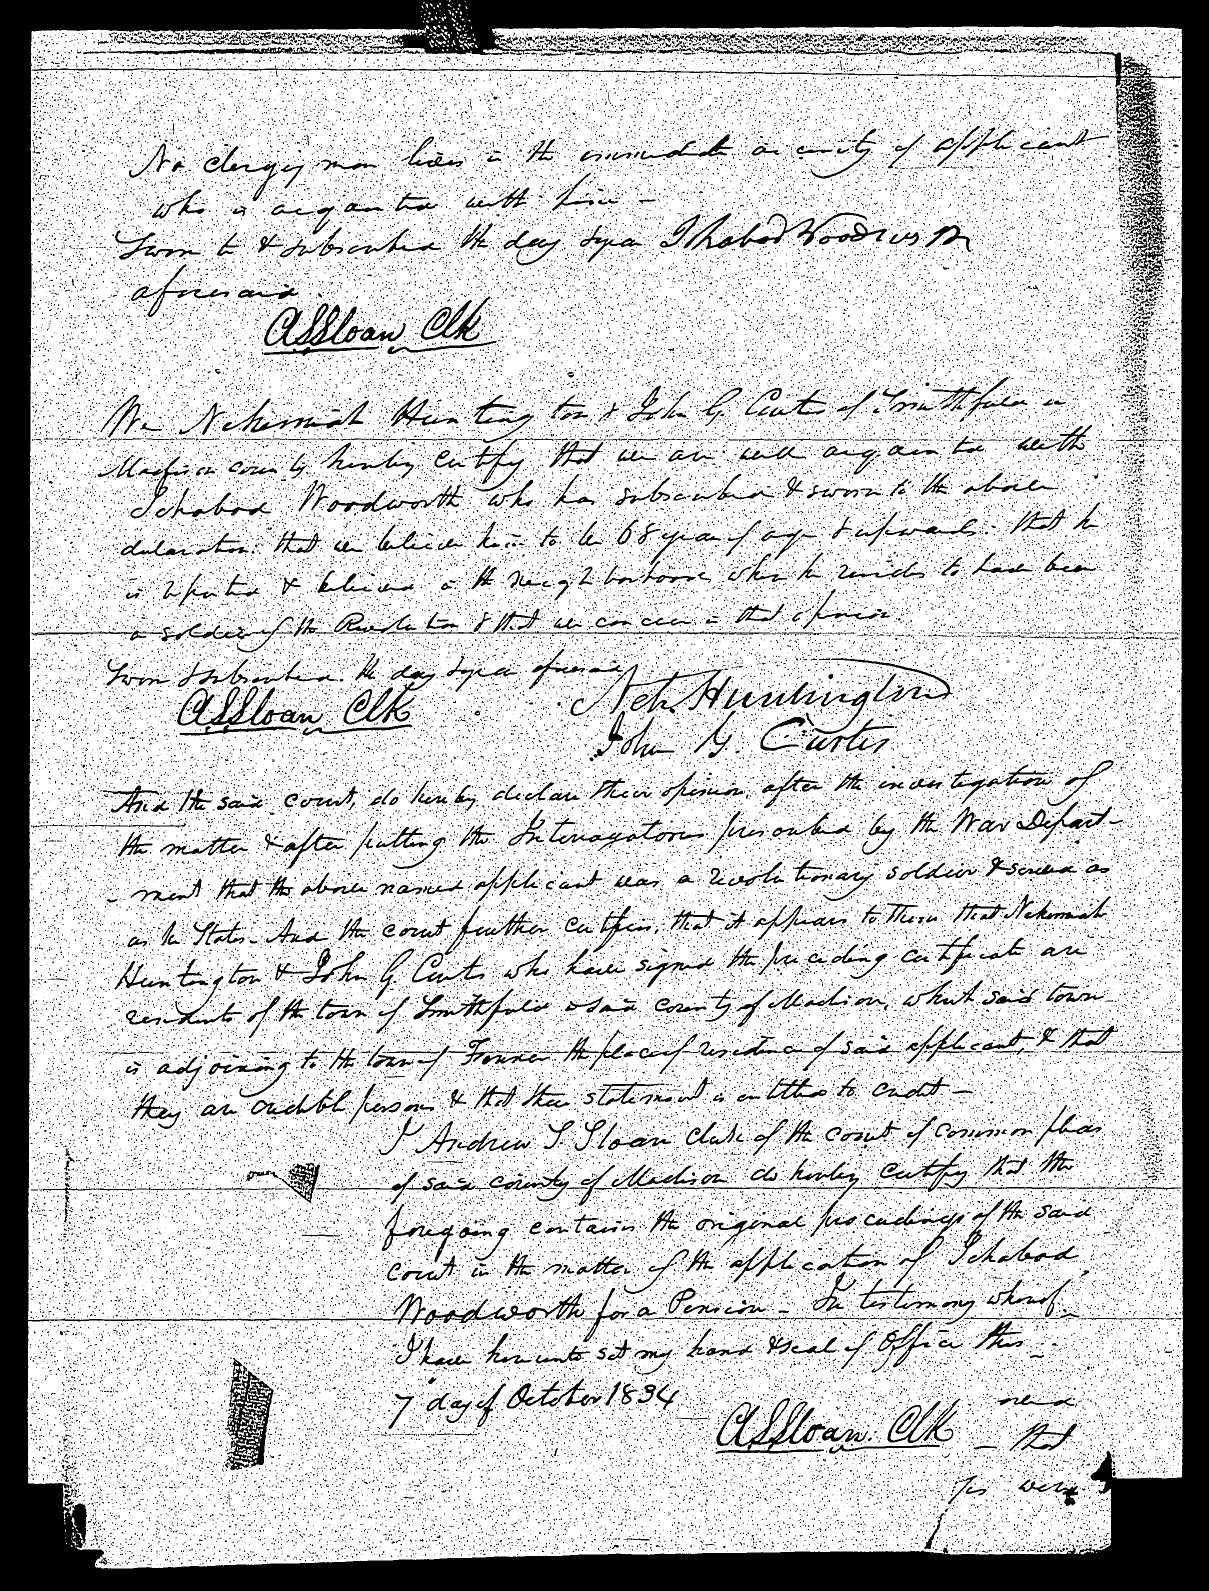 No clergy man lives in the immediate vicinity of applicant
who is acquainted with him –
Sworn to & subscribed the day & year Ichabod Woodworth
aforesaid
A S Sloan Clk
We Nehemiah Huntington & John G. Curtis of Smithfield in
Madison county hereby certify that we are well acquainted with
Ichabod Woodworth who has subscribed & sworn to the above
declaration. that we believe him to be 68 years of age & upwards. that he
is reputed & believed in the neighborhood where he resides to have been
a soldier of the Revolution & that we concur in that opinion.
Sworn & subscribed. the day & year aforesaid
A S Sloan Clk
Neh. Huntington
John G. Curtis
And the said court, do hereby declare their opinion, after the investigation of
the matter & after putting the Interrogatories prescribed by the War Depart-
- ment that the above named applicant was a revolutionary soldier & served as
as he States. And the court further certifies, that it appears to them that Nehemiah
Huntington & John G. Curtis who have signed the preceding certificate are
residents of the town of Smithfield & said county of Madison, which said town
is adjoining to the town of Fenner the place of residence of said applicant, & that
they are credible persons & that their statement is entitled to credit –
I Andrew S. Sloan clerk of the court of common pleas
of said county of Madison do hereby certify that the
over
foregoing contains the original proceedings of the said
court in the matter of the application of Ichabod
Woodworth for a Pension – In testimony whereof
I have hereunto set my hand & seal of Office this
7 day of October 1834
A S Sloan. Clk
– that
were